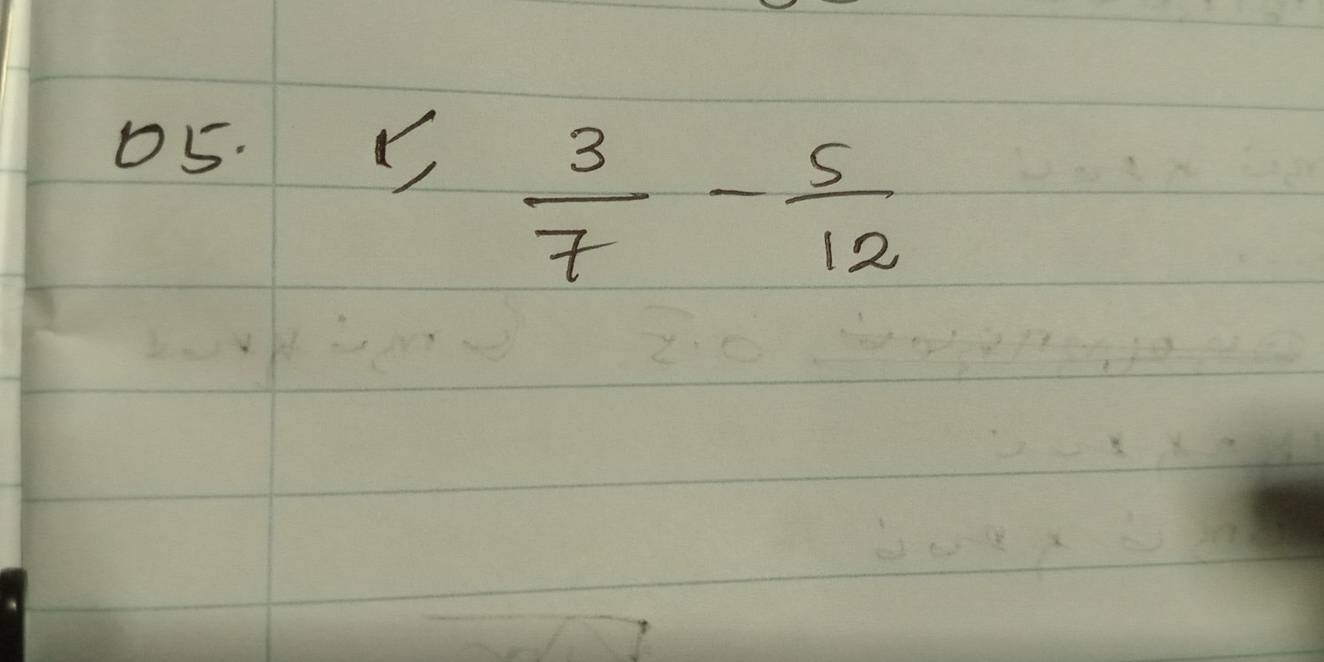 05. 3/7 - 5/12